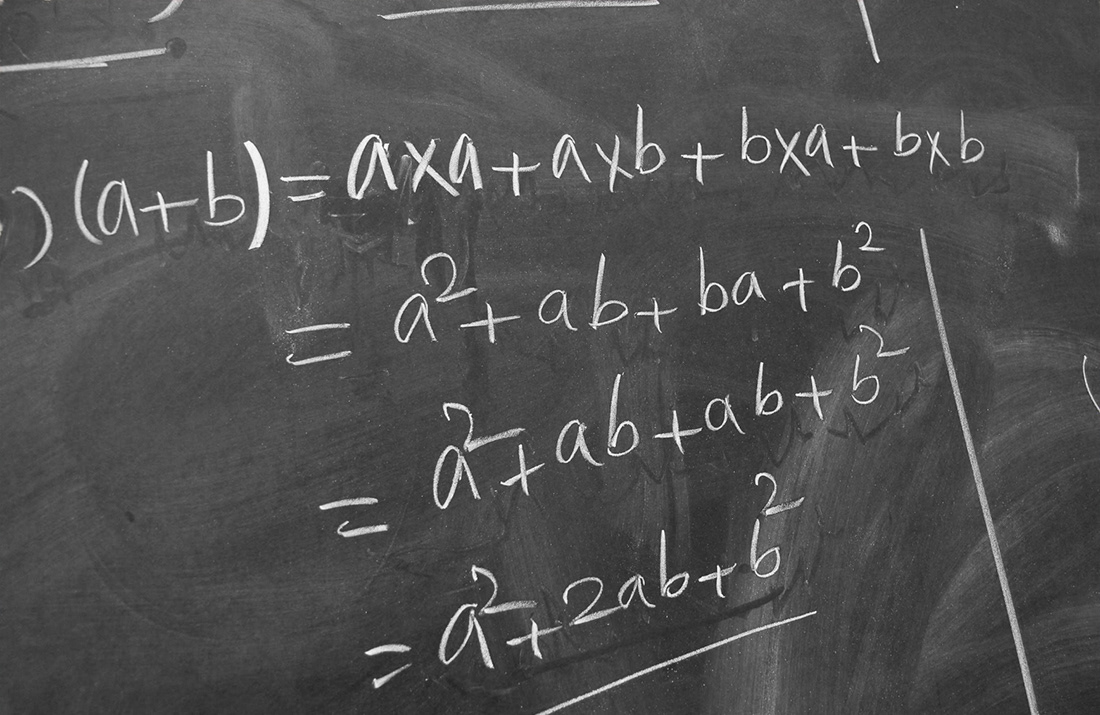 ) (a+b) = a×a + a×b + b×a + b×b
= a² + ab + ba + b²
= a² + ab + ab + b²
= a² + 2ab + b²